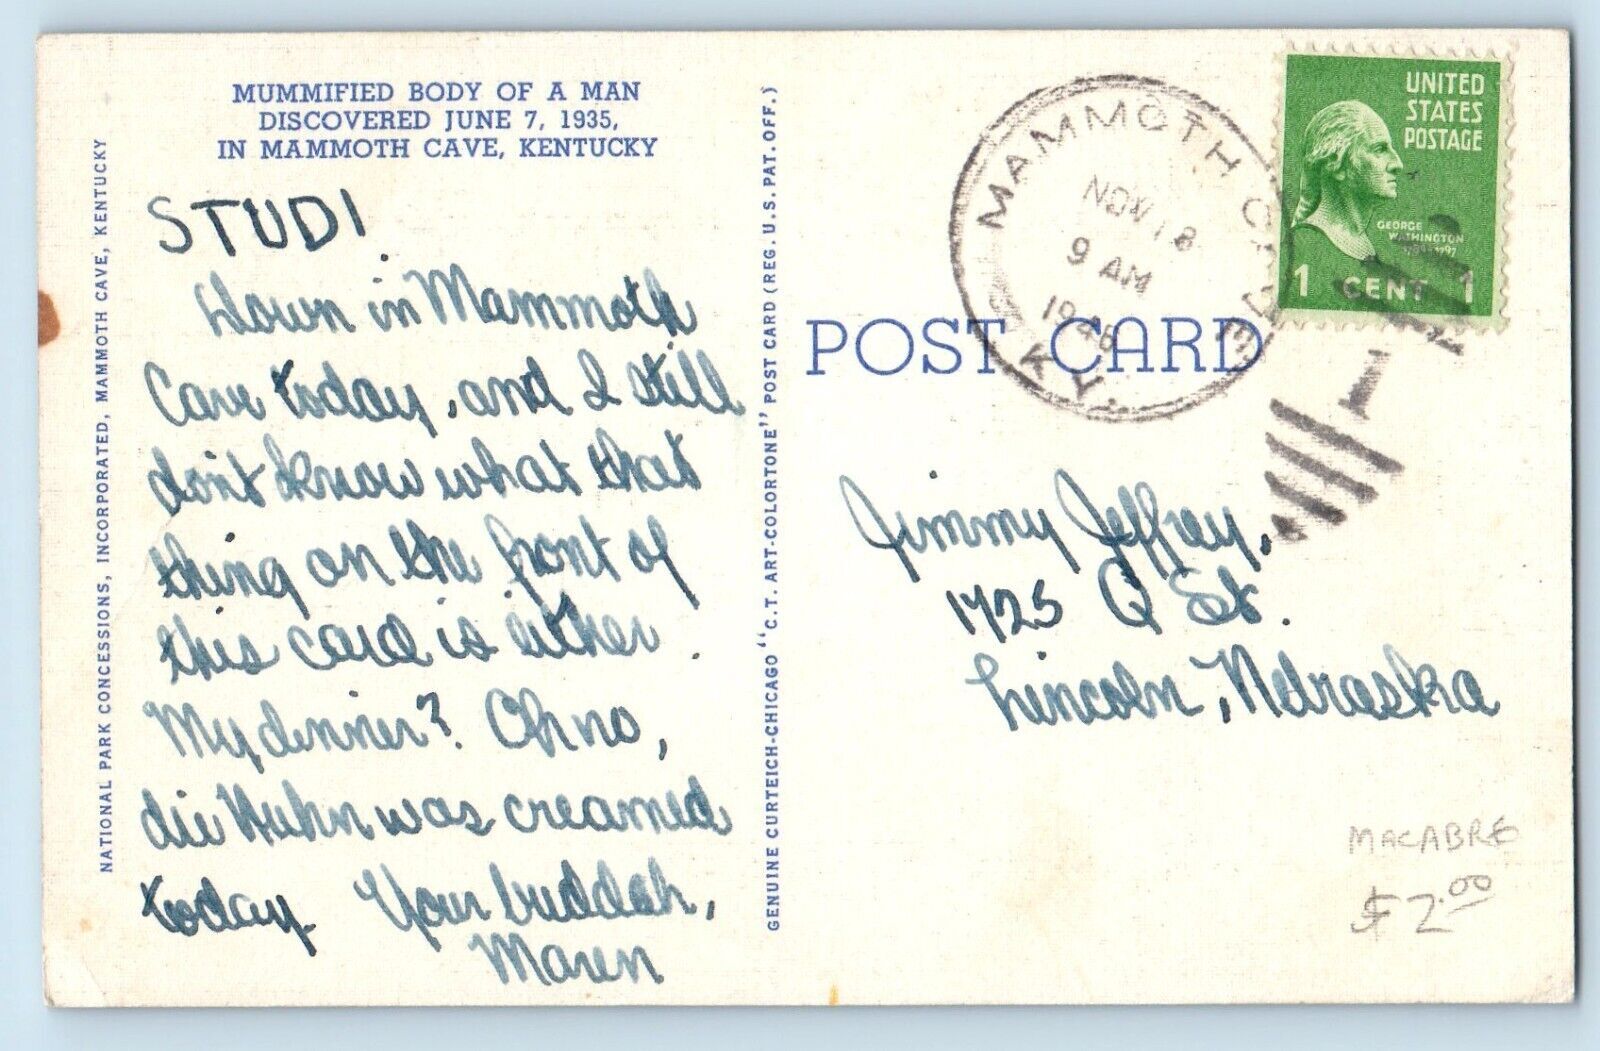 MUMMIFIED BODY OF A MAN
DISCOVERED JUNE 7, 1935,
IN MAMMOTH CAVE, KENTUCKY
STUDI
Down in Mammoth
Cave today, and I still
don't know what that
thing on the front of
this card is either.
My dinner? Oh no,
die Huhn was creamed
today. Your buddah,
Maren
NATIONAL PARK CONCESSIONS, INCORPORATED, MAMMOTH CAVE, KENTUCKY
GENUINE CURTEICH-CHICAGO "C.T. ART-COLORTONE" POST CARD (REG. U.S. PAT. OFF.)
POST CARD
MAMMOTH CAVE
NOV 18
9 AM
1946
KY.
UNITED
STATES
POSTAGE
GEORGE
WASHINGTON
1 CENT 1
Jimmy Jeffrey,
1725 Q St.
Lincoln, Nebraska
MACABRE
$2.00